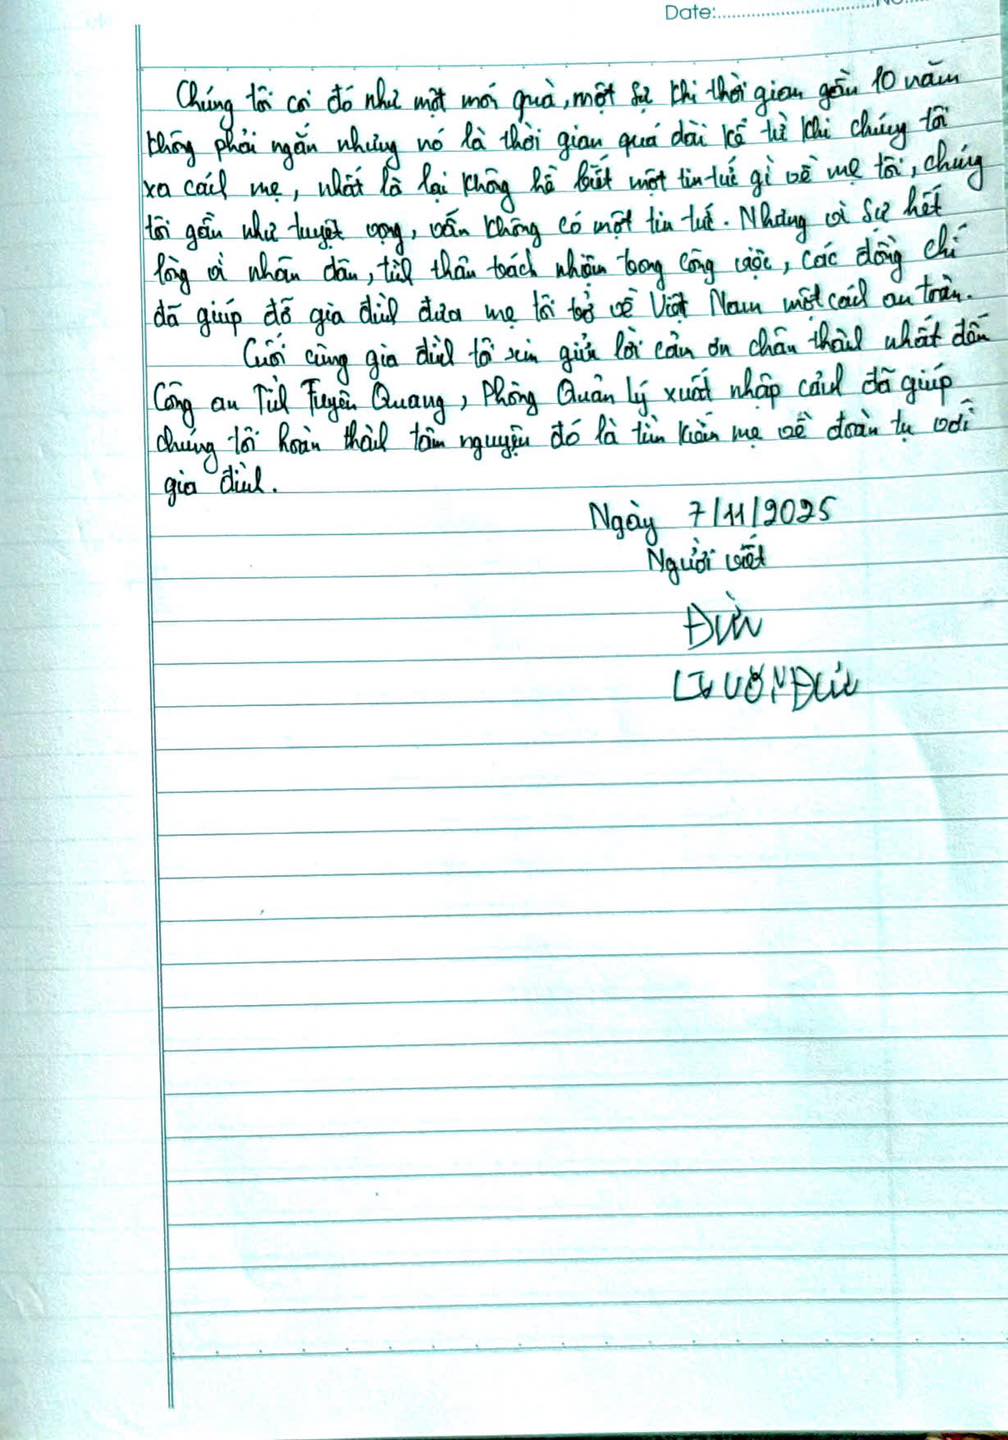 Date:
Chúng tôi coi đó như một món quà, một sự khi thời gian gần 10 năm
không phải ngắn nhưng nó là thời gian quá dài kể từ khi chúng tôi
xa cách mẹ, nhất là lại không hề biết một tin tức gì về mẹ tôi, chúng
tôi gần như tuyệt vọng, vẫn không có một tin tức. Nhưng vì sự hết
lòng vì nhân dân, tinh thần trách nhiệm trong công việc, các đồng chí
đã giúp đỡ gia đình đưa mẹ tôi trở về Việt Nam một cách an toàn.
Cuối cùng gia đình tôi xin gửi lời cảm ơn chân thành nhất đến
Công an Tỉnh Tuyên Quang, Phòng Quản lý xuất nhập cảnh đã giúp
chúng tôi hoàn thành tâm nguyện đó là tìm kiếm mẹ về đoàn tụ với
gia đình.
Ngày 7/11/2025
Người viết